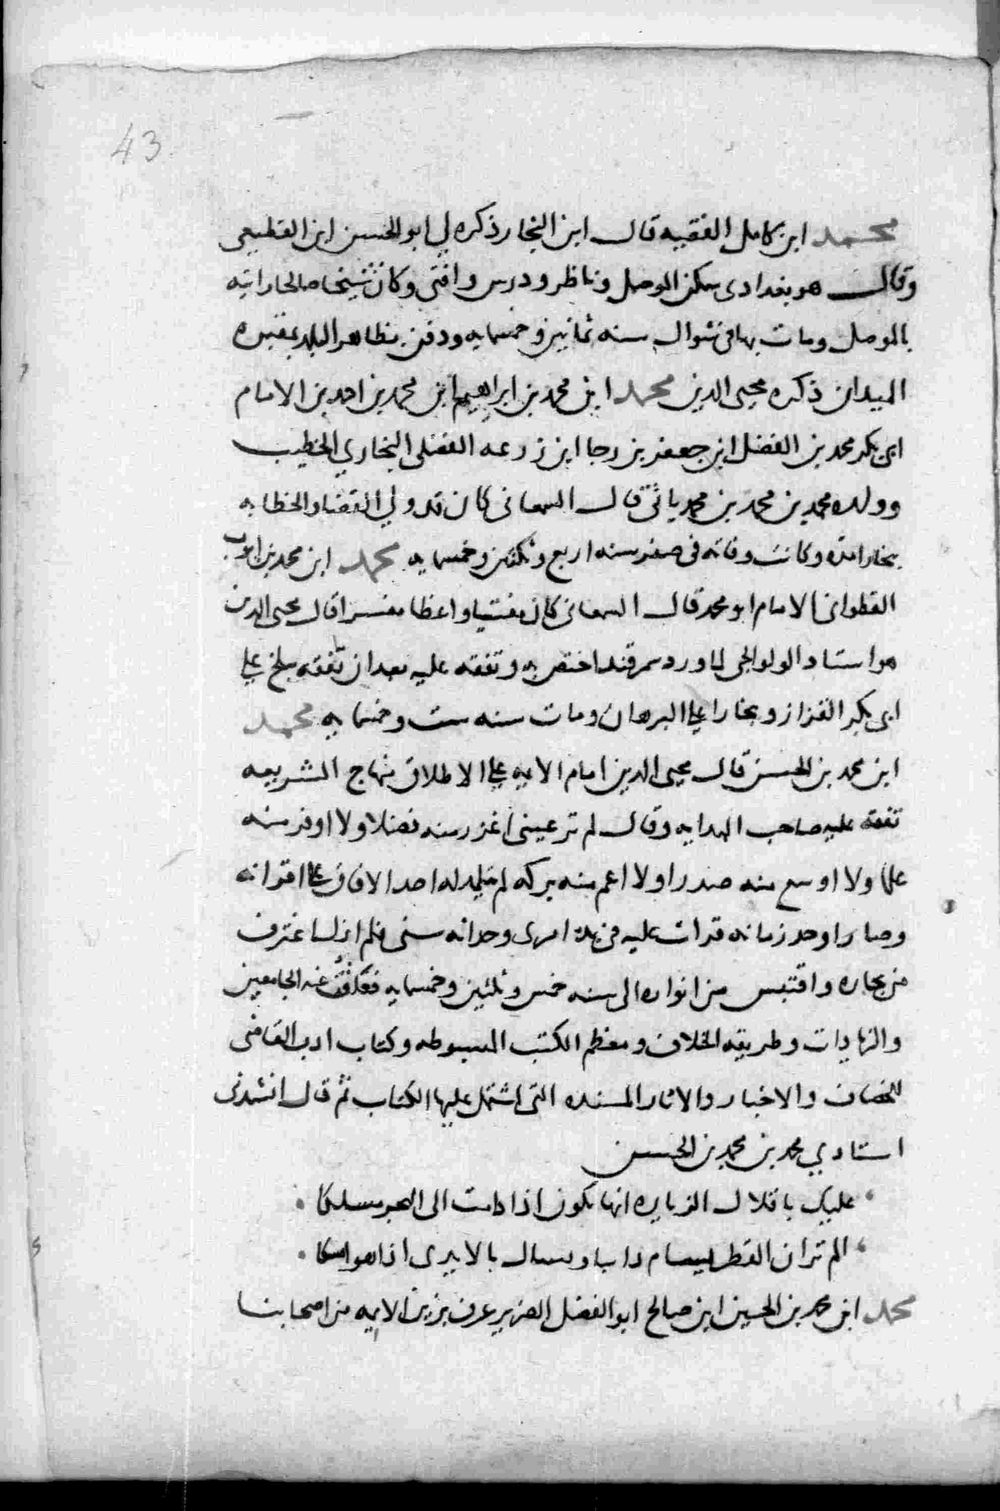 43
محمد ابن كامل الفقيه قال ابن النجار ذكره لي ابو الحسن ابن القطيعي
وقال هو بغدادى سكن الموصل وناظر ودرس وافتى وكان شيخا صالحا راتبه
بالموصل ومات بها فى شوال سنه ثمانين وخمسمايه ودفن بظاهر البلد بمقبره
الميدان ذكره محيى الدين محمد ابن محمد بن ابراهيم ابن محمد بن احمد بن الامام
ابى بكر محمد بن الفضل ابن جعفر بن رجا ابن زرعه الفضلى البخاري الخطيب
وولده محمد بن محمد بن محمد ياتى قال السمعانى كان قد ولي القضا والخطابه
ببخارا مده وكانت وفاته فى صفر سنه اربع وثلثين وخمسمايه محمد ابن محمد بن ايوب
القطوانى الامام ابو محمد قال السمعانى كان مفتيا واعظا مفسرا قال محيى الدين
هو استاد الولوالجى لما ورد سمرقند اختص به وتفقه عليه بعد ان تفقه ببلخ علي
ابى بكر القزاز وبخارا علي البرهان ومات سنه ست وخمسمايه محمد
ابن محمد بن الحسن قال محيى الدين امام الايمه علي الاطلاق منهاج الشريعه
تفقه عليه صاحب الهدايه وقال لم تر عينى اغزر منه فضلا ولا اوفر منه
علما ولا اوسع منه صدرا ولا اعم منه بركه لم يتلمد له احد الا فاق علي اقرانه
وصار اوحد زمانه قرات عليه فى بدء امرى وحداثه سنى فلم ازل اغترف
من بحاره واقتبس من انواره الى سنه خمس وثلثين وخمسمايه فعلقت عنه الجامعين
والزيادات وطريقه الخلاف ومعظم الكتب المبسوطه وكتاب ادب القاضى
للخصاف والاخبار والاثار المسنده التى اشتمل عليها الكتاب ثم قال انشدنى
استادي محمد بن محمد بن الحسن
عليك باقلال الزياره انها تكون اذا دامت الى الهجر مسلكا
الم تر ان القطر يسام دايبا ويسال بالايدى اذا هو امسكا
محمد ابن محمد بن الحسين ابن صالح ابو الفضل الضرير عرف بزين الايمه من اصحابنا